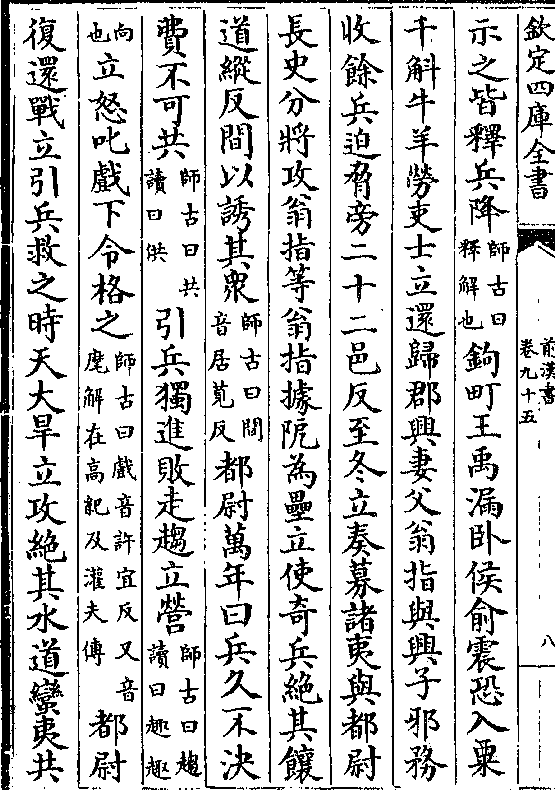 欽定四庫全書
前漢書
卷九十五
八
示之皆釋兵降師古曰釋解也鉤町王禹漏卧侯俞震恐入粟
千斛牛羊勞吏士立還歸郡興妻父翁指與興子邪務
收餘兵迫脅旁二十二邑反至冬立奏募諸夷與都尉
長史分將攻翁指等翁指據阨為壘立使奇兵絶其饟
道縱反間以誘其衆師古曰間音居莧反都尉萬年曰兵久不決
費不可共師古曰共讀曰供引兵獨進敗走趨立營師古曰趨讀曰趣趣
向也立怒叱戲下令格之師古曰戲音許宜反又音麾解在高紀及灌夫傳都尉
復還戰立引兵救之時天大旱立攻絶其水道蠻夷共